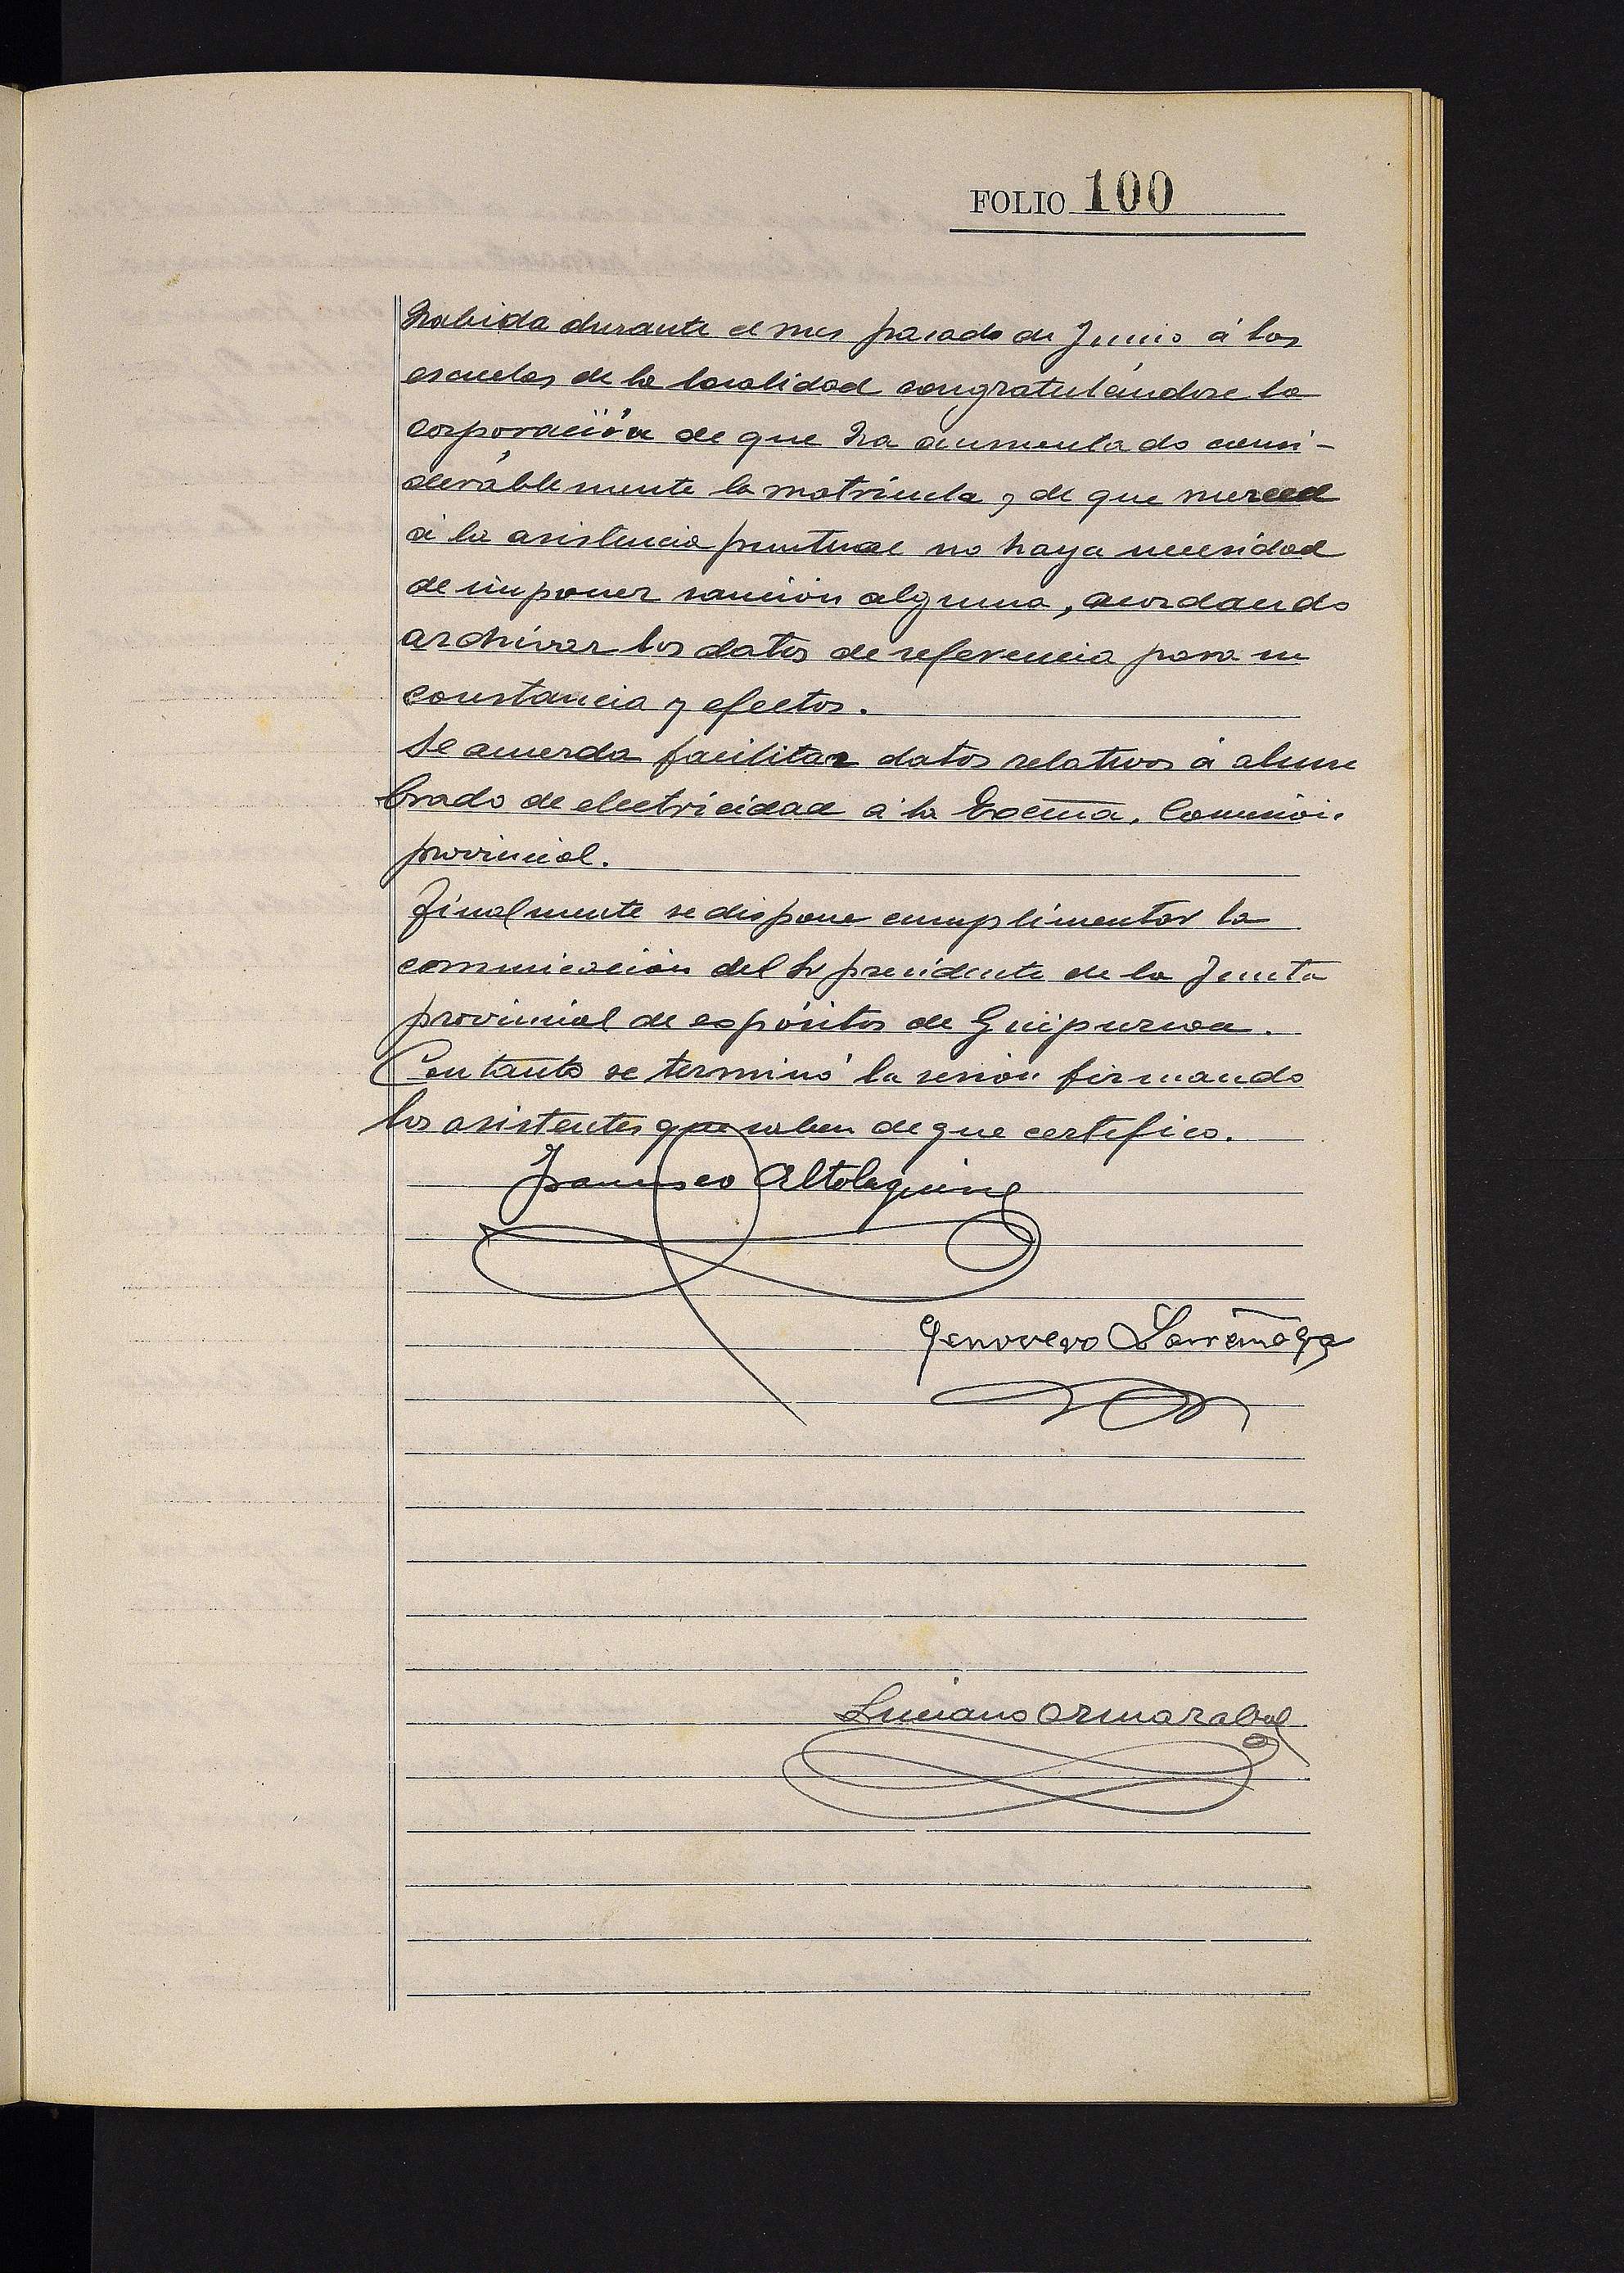 FOLIO 100
habida durante el mes pasado de Junio á las
escuelas de la localidad congratulándose la
corporación de que ha aumentado consi-
derablemente la matrícula y de que merced
á la asistencia puntual no haya necesidad
de imponer sanción alguna, acordando
archivar los datos de referencia para su
constancia y efectos.
Se acuerda facilitar datos relativos á alum
brado de electricidad á la Excma. Comisión
provincial.
Finalmente se dispone cumplimentar la
comunicación del Sr presidente de la Junta
provincial de expósitos de Guipuzcoa.
Con tanto se terminó la sesión firmando
los asistentes que saben de que certifico.
Francisco Altolaguirre
Genoveva Larrañaga
Luciano Ormazabal